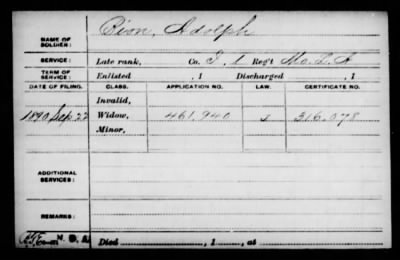 NAME OF SOLDIER: Bion, Adolph
SERVICE: Late rank, Co. I, 1 Reg't Mo. L. A
TERM OF SERVICE: Enlisted , 1 Discharged , 1
DATE OF FILING. CLASS. APPLICATION NO. LAW. CERTIFICATE NO.
Invalid,
1890 Sep 22 Widow, 461,940 I 316,078
Minor,
ADDITIONAL SERVICES:
REMARKS:
Died , 1 , at